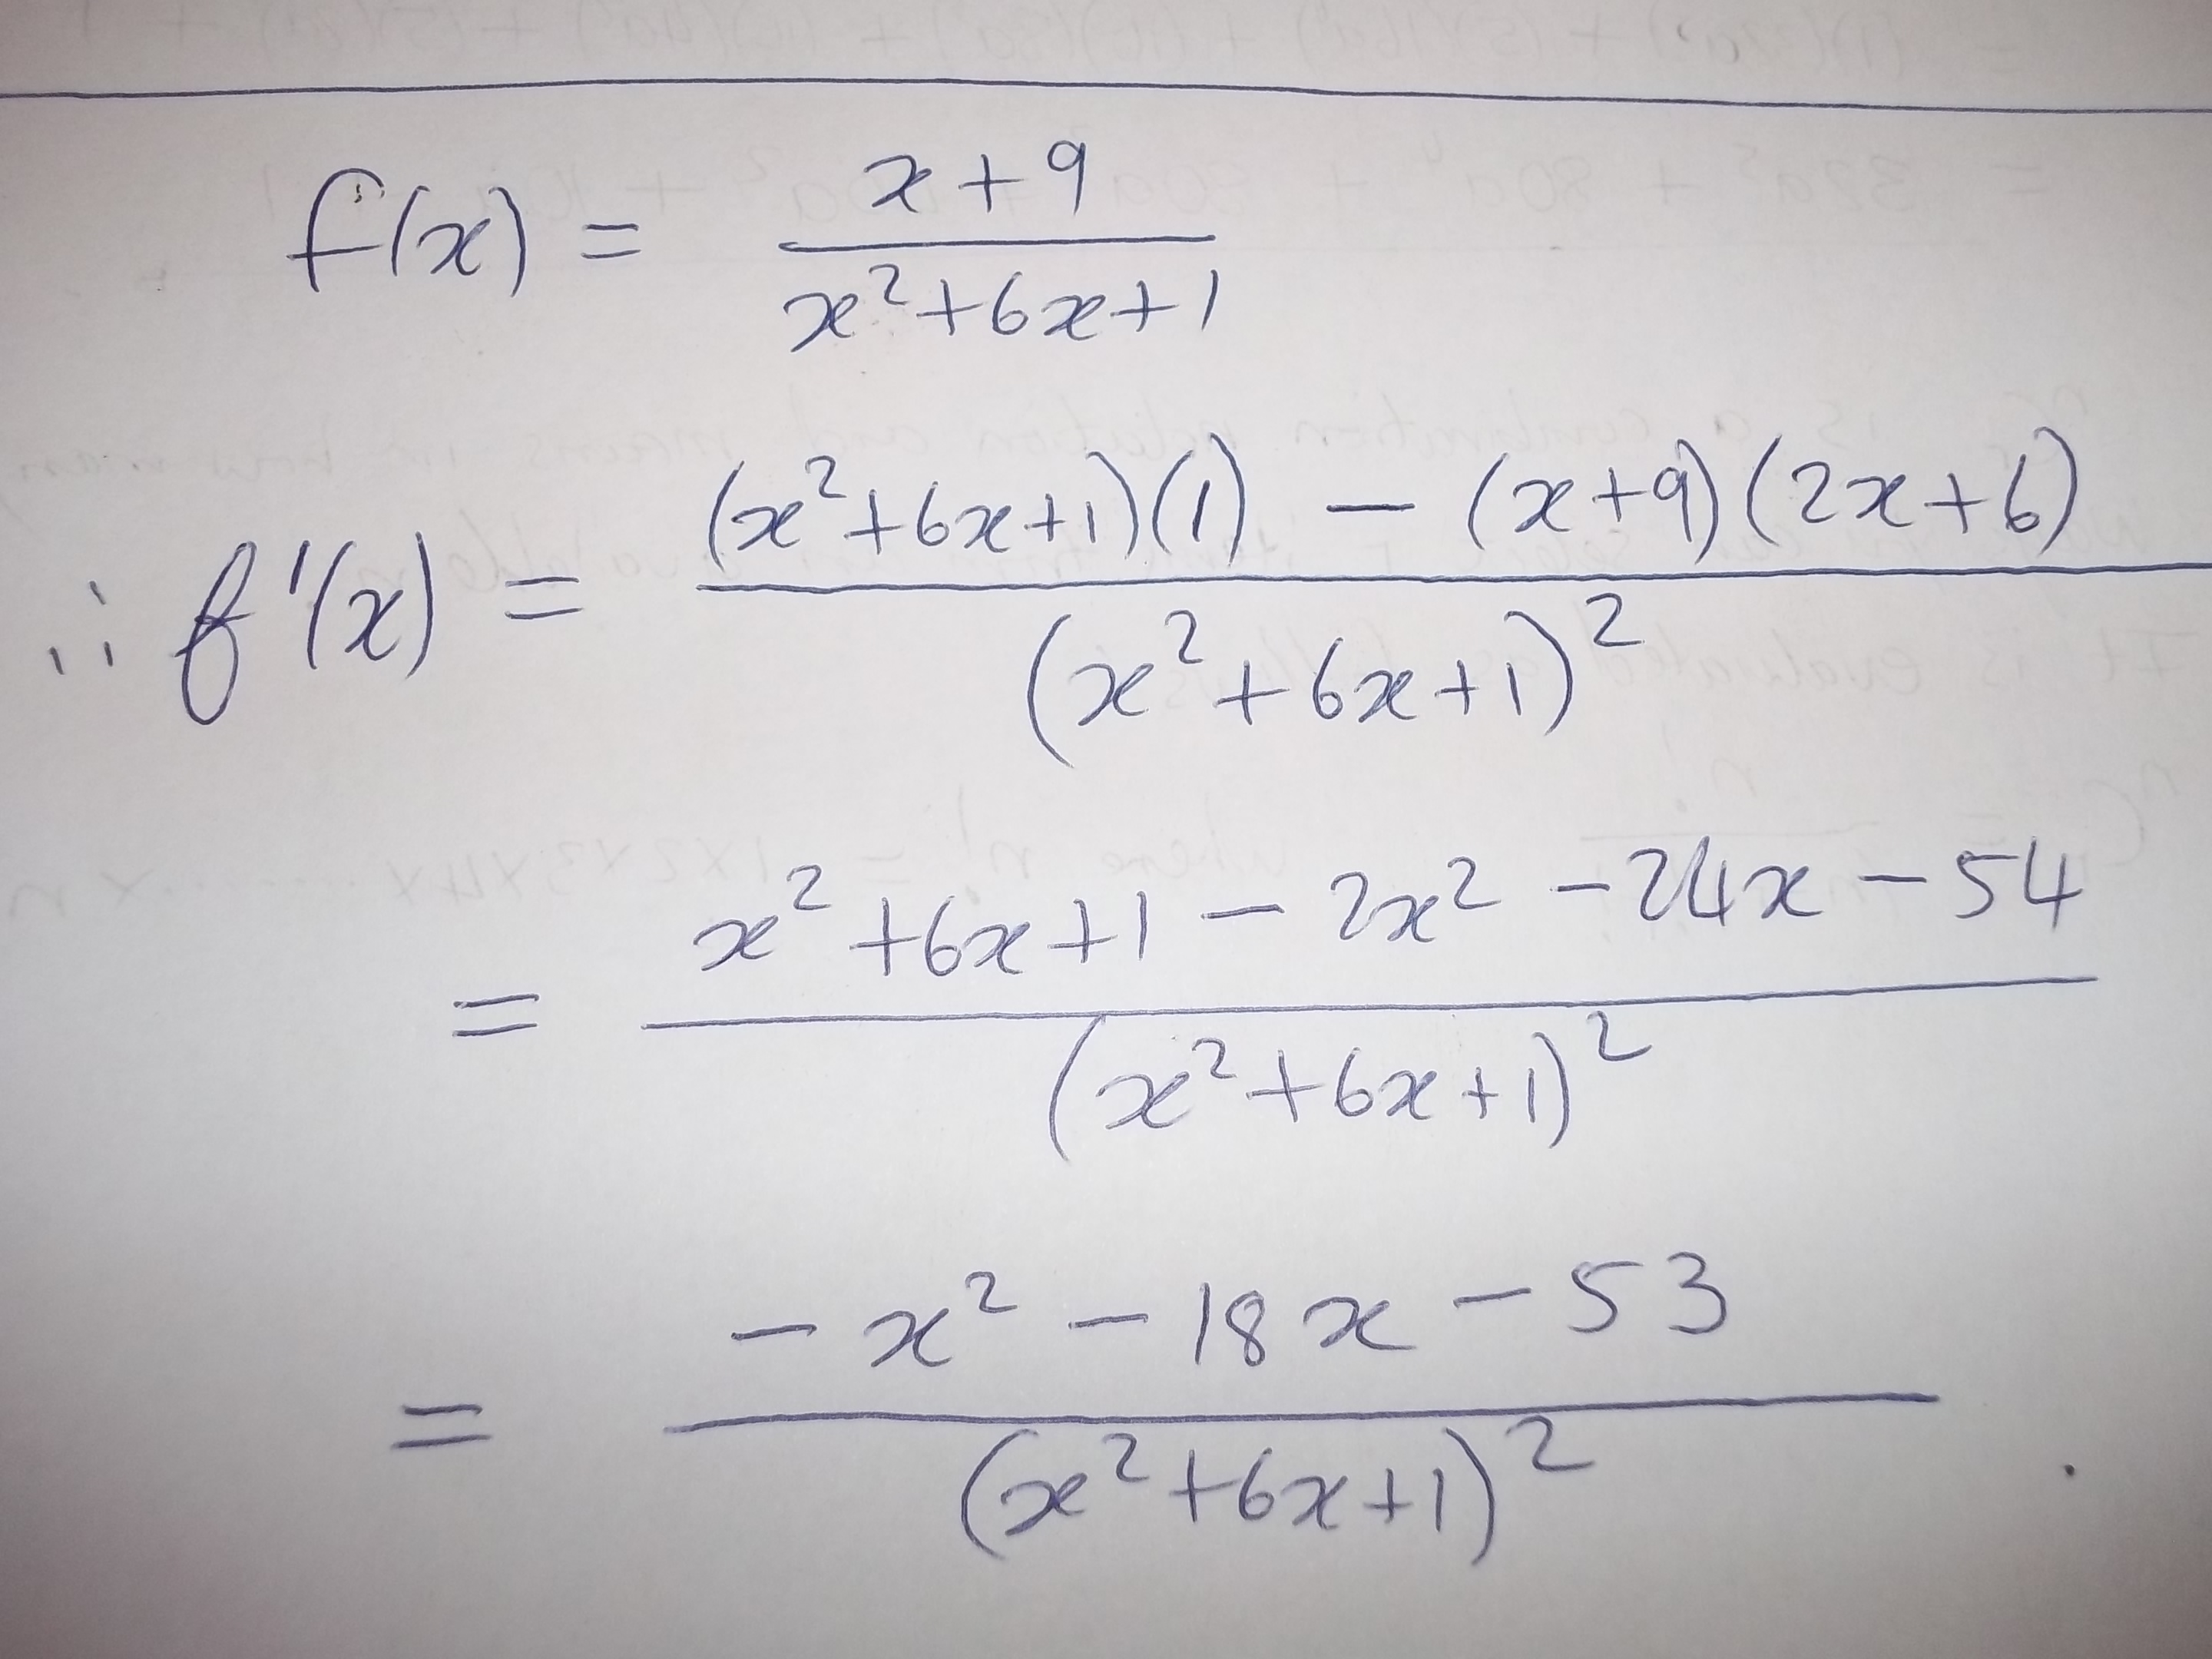 f(x) = x+9 / x²+6x+1
∴ f'(x) = (x²+6x+1)(1) − (x+9)(2x+6) / (x²+6x+1)²
= x²+6x+1 − 2x² − 24x − 54 / (x²+6x+1)²
= −x² − 18x − 53 / (x²+6x+1)²